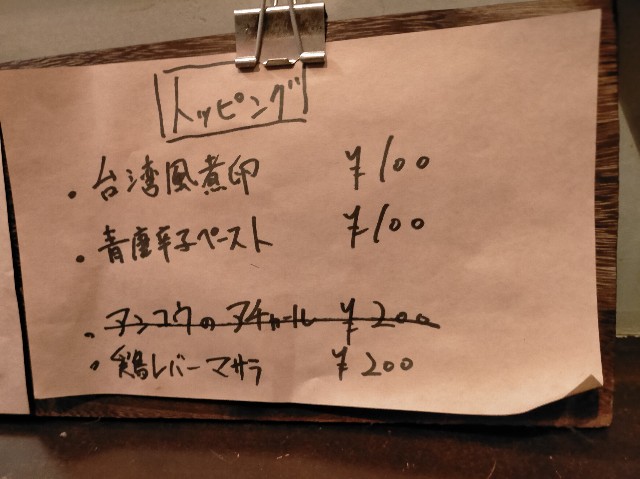 トッピング
・台湾風煮卵 ¥100
・青唐辛子ペースト ¥100
・アンコウのアチャール ¥200
・鶏レバーマサラ ¥200